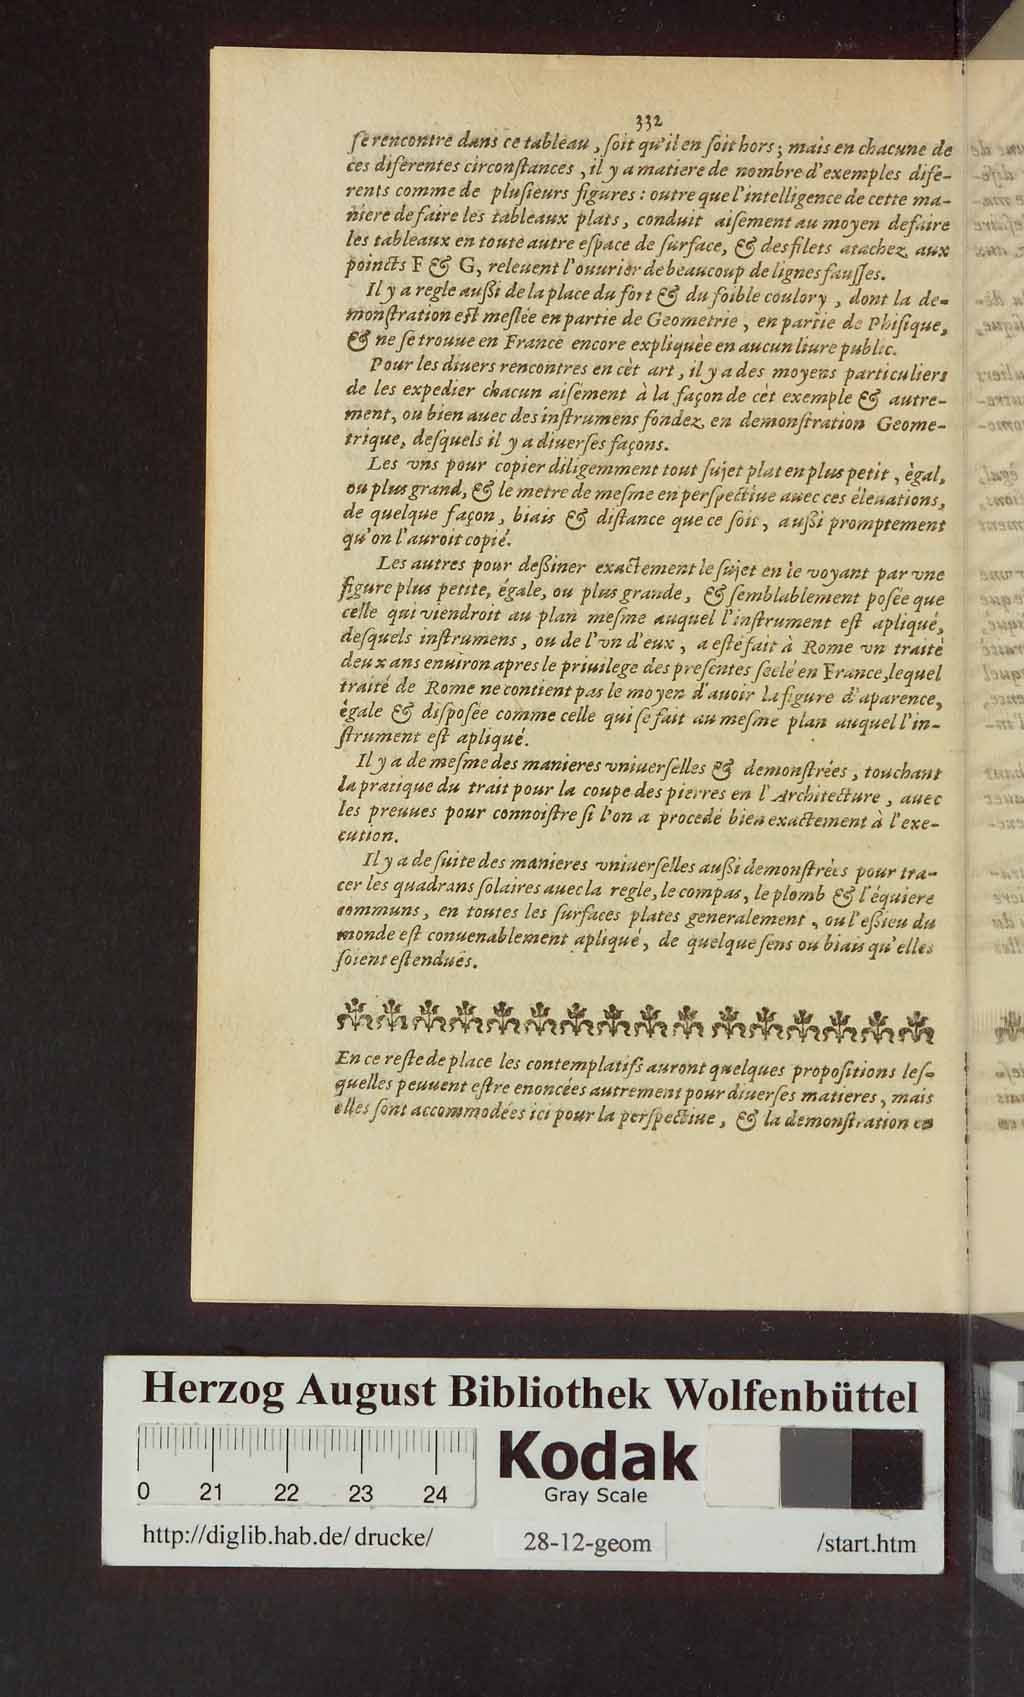 332
ſe rencontre dans ce tableau, ſoit qu'il en ſoit hors; mais en chacune de
ces diferentes circonſtances, il y a matiere de nombre d'exemples dife-
rents comme de pluſieurs figures: outre que l'intelligence de cette ma-
niere de faire les tableaux plats, conduit aiſement au moyen de faire
les tableaux en toute autre eſpace de ſurface, & des filets atachez aux
poincts F & G, releuent l'ouurier de beaucoup de lignes fauſſes.
Il y a regle auſſi de la place du fort & du foible coulory, dont la de-
monſtration eſt meſlée en partie de Geometrie, en partie de Phiſique,
& ne ſe trouue en France encore expliquèe en aucun liure public.
Pour les diuers rencontres en cèt art, il y a des moyens particuliers
de les expedier chacun aiſement à la façon de cèt exemple & autre-
ment, ou bien auec des inſtrumens fondez en demonſtration Geome-
trique, deſquels il y a diuerſes façons.
Les vns pour copier diligemment tout ſujet plat en plus petit, ègal,
ou plus grand, & le metre de meſme en perſpectiue auec ces éleuations,
de quelque façon, biais & diſtance que ce ſoit, auſſi promptement
qu'on l'auroit copié.
Les autres pour deſſiner exactement le ſujet en le voyant par vne
figure plus petite, égale, ou plus grande, & ſemblablement poſée que
celle qui viendroit au plan meſme auquel l'inſtrument eſt apliqué,
deſquels inſtrumens, ou de l'vn d'eux, a eſté fait à Rome vn traité
deux ans enuiron apres le priuilege des preſentes ſeclé en France, lequel
traité de Rome ne contient pas le moyen d'auoir la figure d'aparence,
ègale & diſpoſée comme celle qui ſe fait au meſme plan auquel l'in-
ſtrument eſt apliqué.
Il y a de meſme des manieres vniuerſelles & demonſtrées, touchant
la pratique du trait pour la coupe des pierres en l'Architecture, auec
les preuues pour connoiſtre ſi l'on a procedé bien exactement à l'exe-
cution.
Il y a de ſuite des manieres vniuerſelles auſſi demonſtrèes pour tra-
cer les quadrans ſolaires auec la regle, le compas, le plomb & l'équiere
communs, en toutes les ſurfaces plates generalement, ou l'eſſieu du
monde eſt conuenablement apliqué, de quelque ſens ou biais qu'elles
ſoient eſtenduës.
En ce reſte de place les contemplatifs auront quelques propoſitions leſ-
quelles peuuent eſtre enoncées autrement pour diuerſes matieres, mais
elles ſont accommodées ici pour la perſpectiue, & la demonſtration en
Herzog August Bibliothek Wolfenbüttel
Kodak
Gray Scale
0 21 22 23 24
http://diglib.hab.de/drucke/ 28-12-geom /start.htm